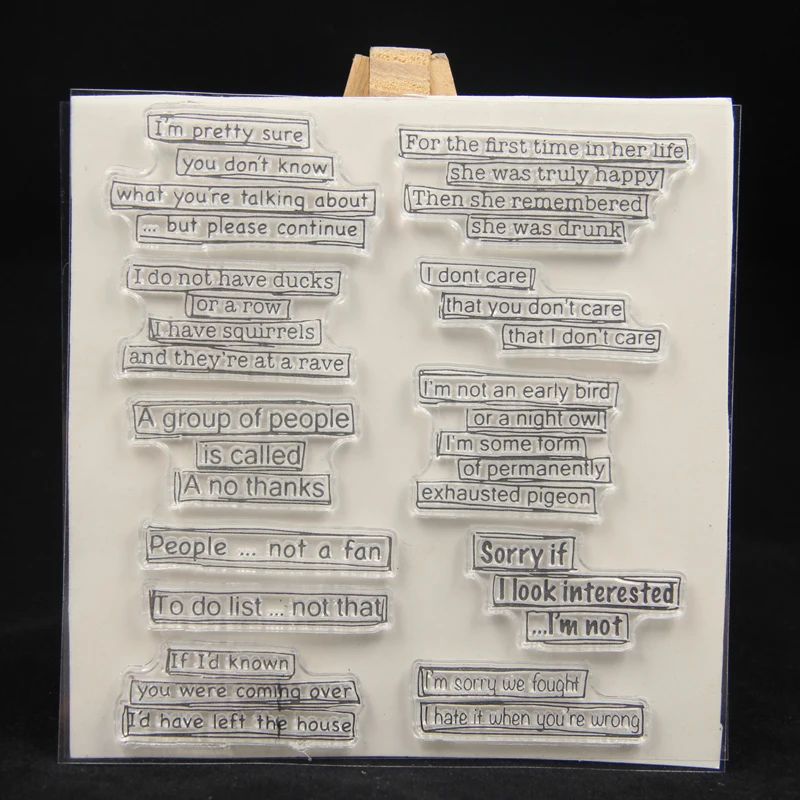 I'm pretty sure
you don't know
what you're talking about
... but please continue
I do not have ducks
or a row
I have squirrels
and they're at a rave
A group of people
is called
A no thanks
People ... not a fan
To do list ... not that
If I'd known
you were coming over
I'd have left the house
For the first time in her life
she was truly happy
Then she remembered
she was drunk
I dont care
that you don't care
that I don't care
I'm not an early bird
or a night owl
I'm some form
of permanently
exhausted pigeon
Sorry if
I look interested
...I'm not
I'm sorry we fought
I hate it when you're wrong